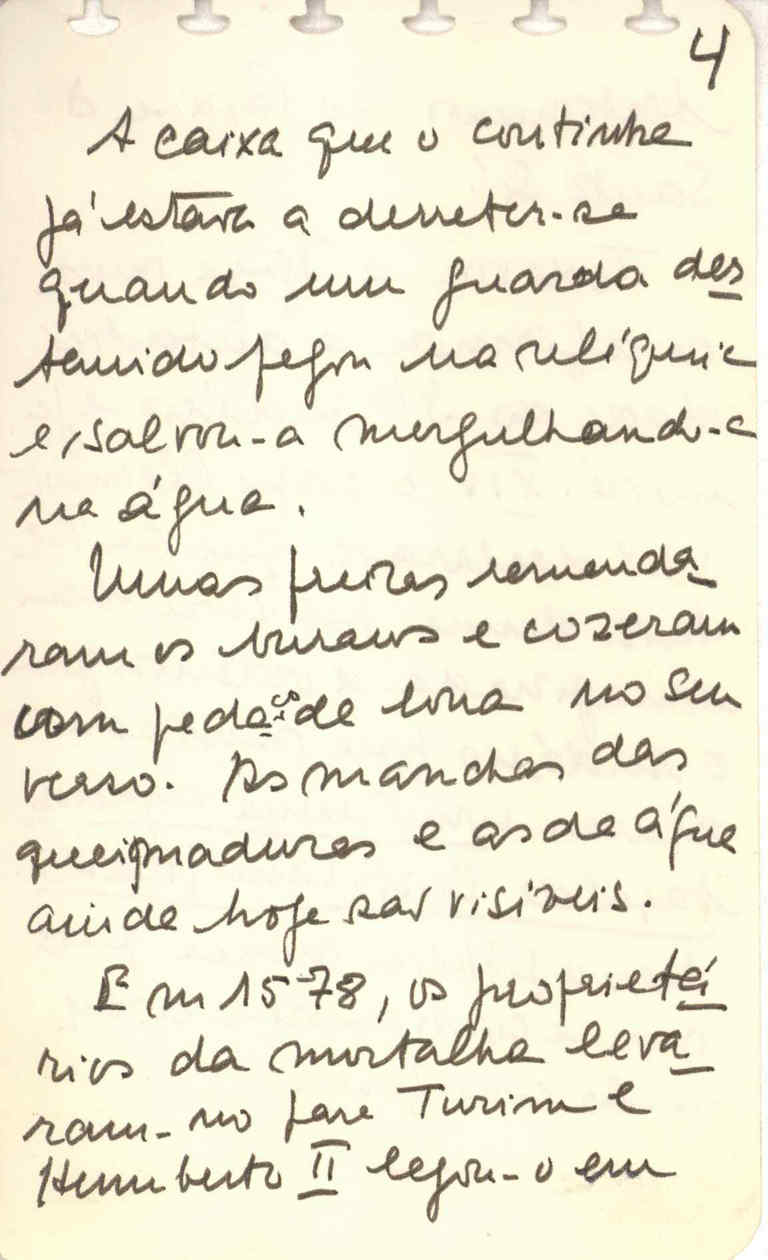 4
A caixa que o continha
já estava a derreter-se
quando um guarda des
temido pegou na relíquia
e salvou-a mergulhando-a
na água.
Umas freiras remenda
ram os buracos e cozeram
com pedaços de lona no seu
verso. As manchas das
queimaduras e as da água
ainda hoje são visíveis.
Em 1578, os proprietá
rios da mortalha leva
ram-no para Turim e
Humberto II legou-o em